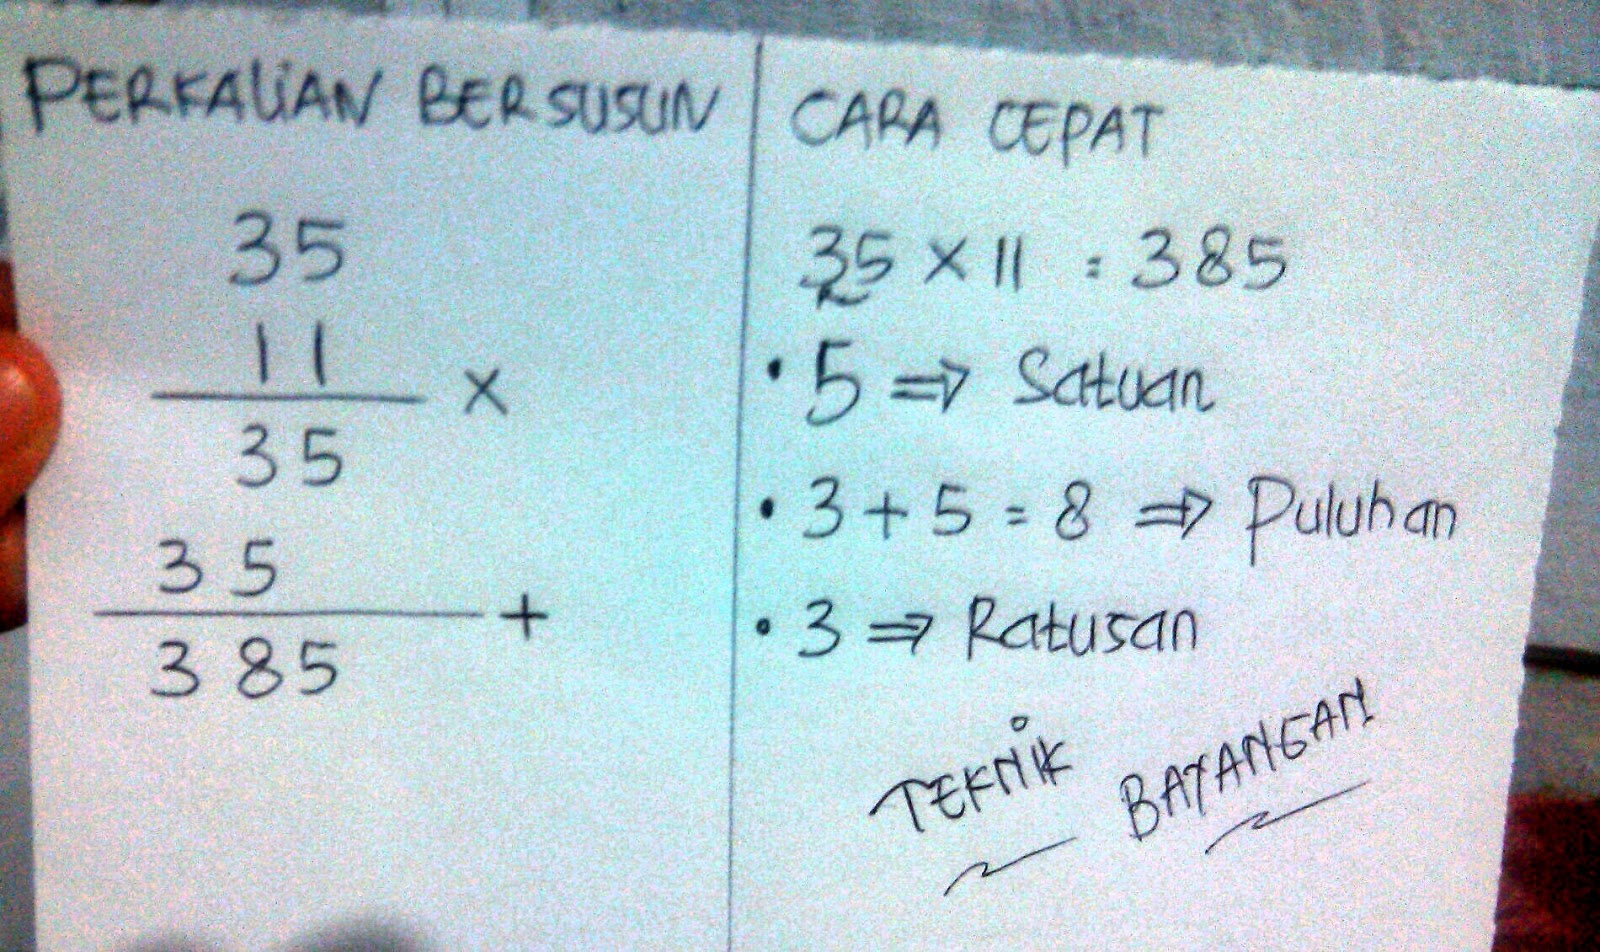 PERKALIAN BERSUSUN
35
11
x
35
35
+
385
CARA CEPAT
35 x 11 = 385
• 5 ⇒ Satuan
• 3 + 5 = 8 ⇒ Puluhan
• 3 ⇒ Ratusan
TEKNIK BAYANGAN